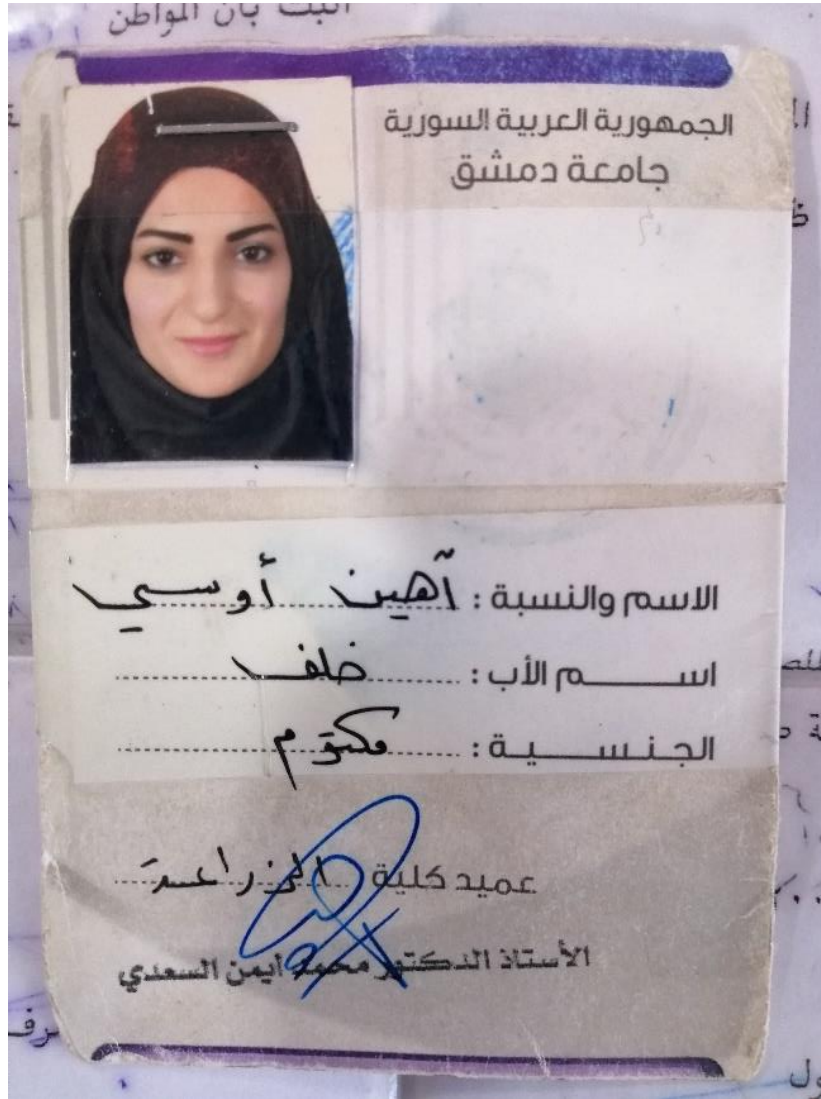 اثبت بأن المواطن
الجمهورية العربية السورية
جامعة دمشق
الاسم والنسبة : آهين أوسي
اسم الأب : خلف
الجنسية : مكتوم
عميد كلية الزراعة
الأستاذ الدكتور محمد أيمن السعدي